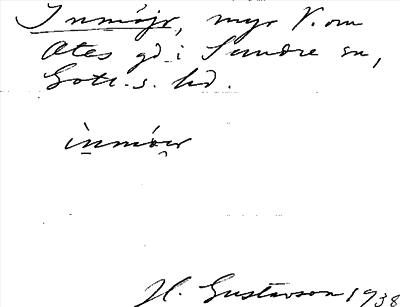 Inmójr, myr V. om
Otes gd i Sundre sn,
Gotl. s. hd.
ìnmóır
H. Gustavson 1938